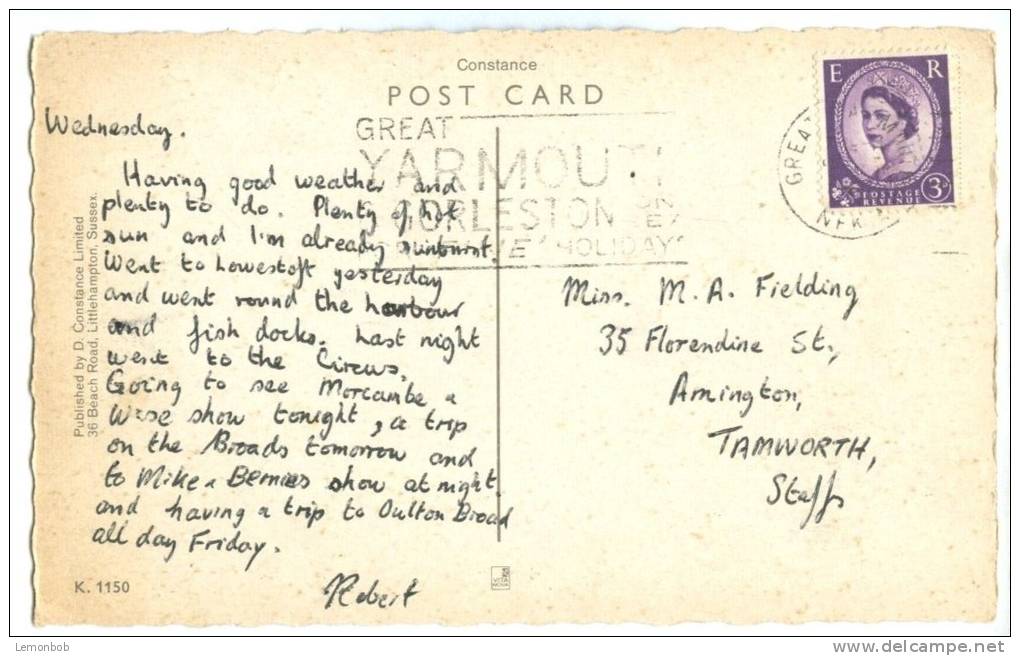 Constance
POST CARD
Wednesday.
Having good weather and
plenty to do. Plenty of hot
sun and I'm already sunburnt.
Went to Lowestoft yesterday
and went round the harbour
and fish docks. Last night
went to the Circus.
Going to see Morcambe &
Wise show tonight, a trip
on the Broads tomorrow and
to Mike & Bernies show at night
and having a trip to Oulton Broad
all day Friday.
Robert
Published by D. Constance Limited
36 Beach Road, Littlehampton, Sussex.
K. 1150
GREAT
YARMOUT
GORLESTON
HOLIDAY
E R
POSTAGE
REVENUE
3D
GREAT
Miss. M. A. Fielding
35 Florendine St.,
Amington,
TAMWORTH,
Staffs
Lemonbob
www.delcampe.net